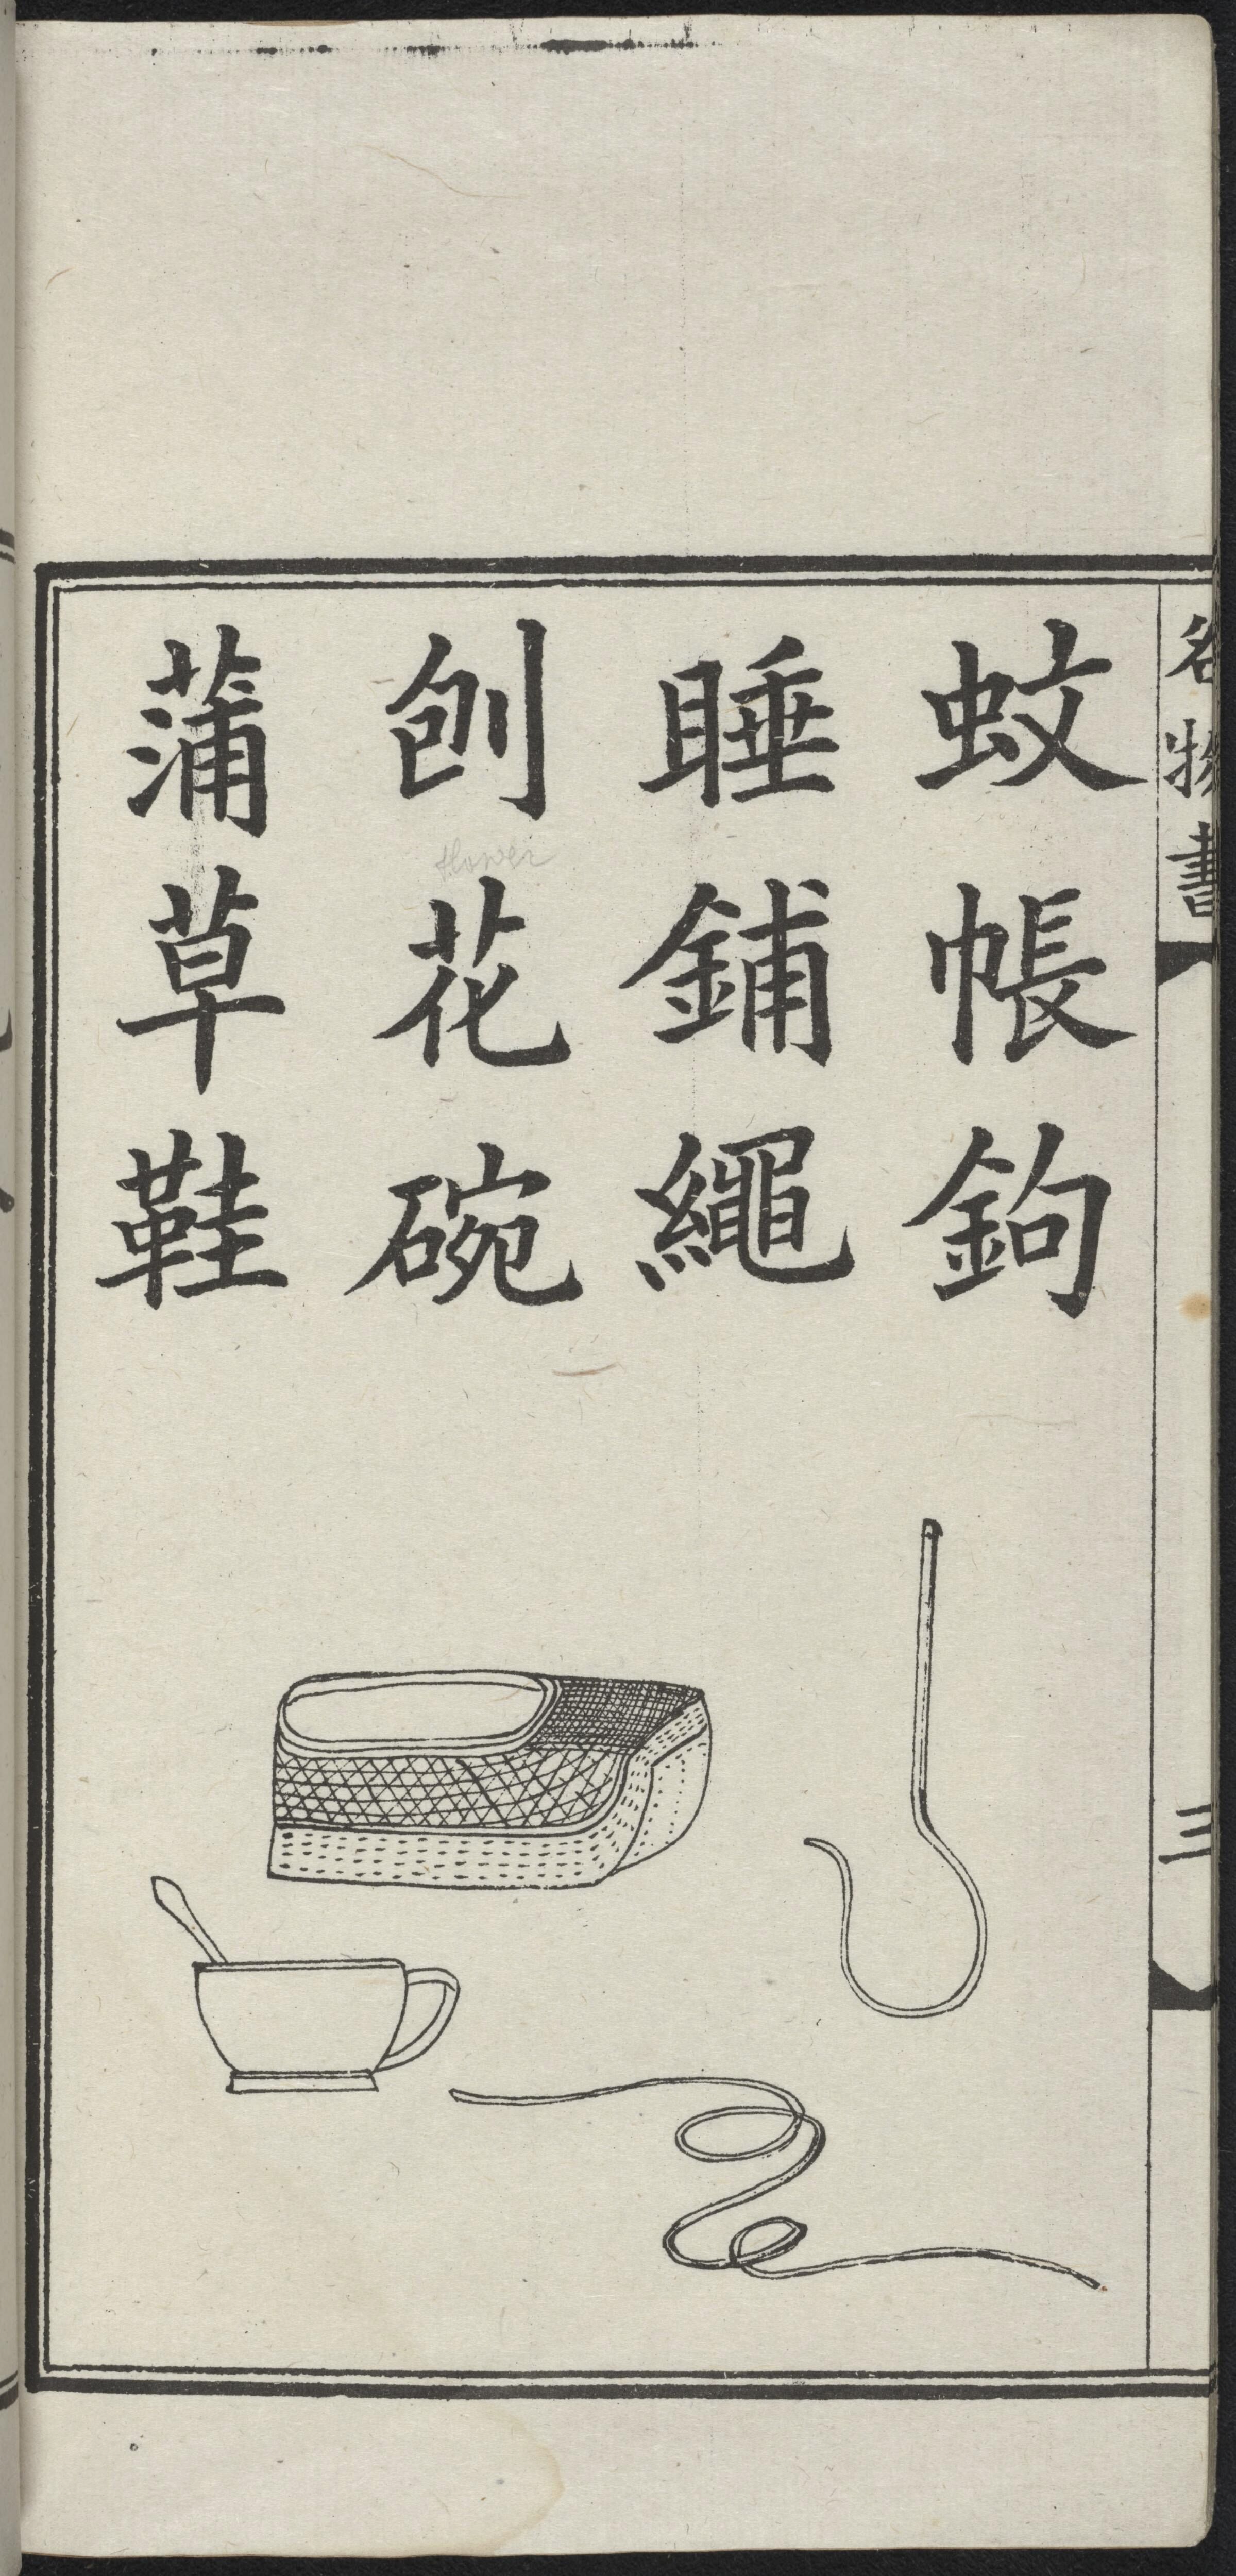 名物書
三
蚊帳鉤
睡鋪繩
刨花碗
flower
蒲草鞋